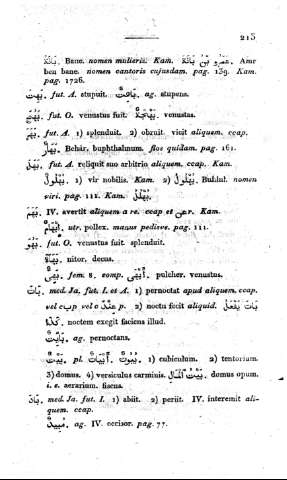 215
بَانَةُ. Bane. nomen mulieris. Kam. عَمْرُو بْنُ بَانَةَ. Amr
ben bane. nomen cantoris cujusdam. pag. 139. Kam.
pag. 1726.
بَهَتَ. fut. A. stupuit. بَاهِتٌ. ag. stupens.
fut. O. venustus fuit. venustus.
بَهَرَ. fut. A. 1) splenduit. 2) obruit. vicit aliquem. ccap.
بَهَارٌ. Behar, buphthalmum. flos quidam. pag. 161.
بَهَلَ. fut. A. reliquit suo arbitrio aliquem. ccap. Kam.
بُهْلُولٌ. 1) vir nobilis. Kam. 2) بُهْلُولٌ. Buhlul. nomen
viri. pag. 111. Kam.
IV. avertit aliquem a re. ccap et عن r. Kam.
utr. pollex. manus pedisve. pag. 111.
بَهُوَ. fut. O. venustus fuit. splenduit.
nitor. decus.
fem. 8. comp. أَبْهَى. pulcher. venustus.
بَاتَ. med. Ja. fut. I. et A. 1) pernoctat apud aliquem. ccap.
vel c ب p vel c عند p. 2) noctu fecit aliquid. بَاتَ يَفْعَلُ
كَذَا. noctem exegit faciens illud.
بَايِتٌ. ag. pernoctans.
بَيْتٌ. pl. بُيُوتٌ. أَبْيَاتٌ. 1) cubiculum. 2) tentorium.
3) domus. 4) versiculus carminis. بَيْتُ الْمَالِ. domus opum.
i. e. aerarium. fiscus.
بَادَ. med. Ja. fut. I. 1) abiit. 2) periit. IV. interemit ali-
quem. ccap.
مُبِيدٌ. ag. IV. occisor. pag. 77.